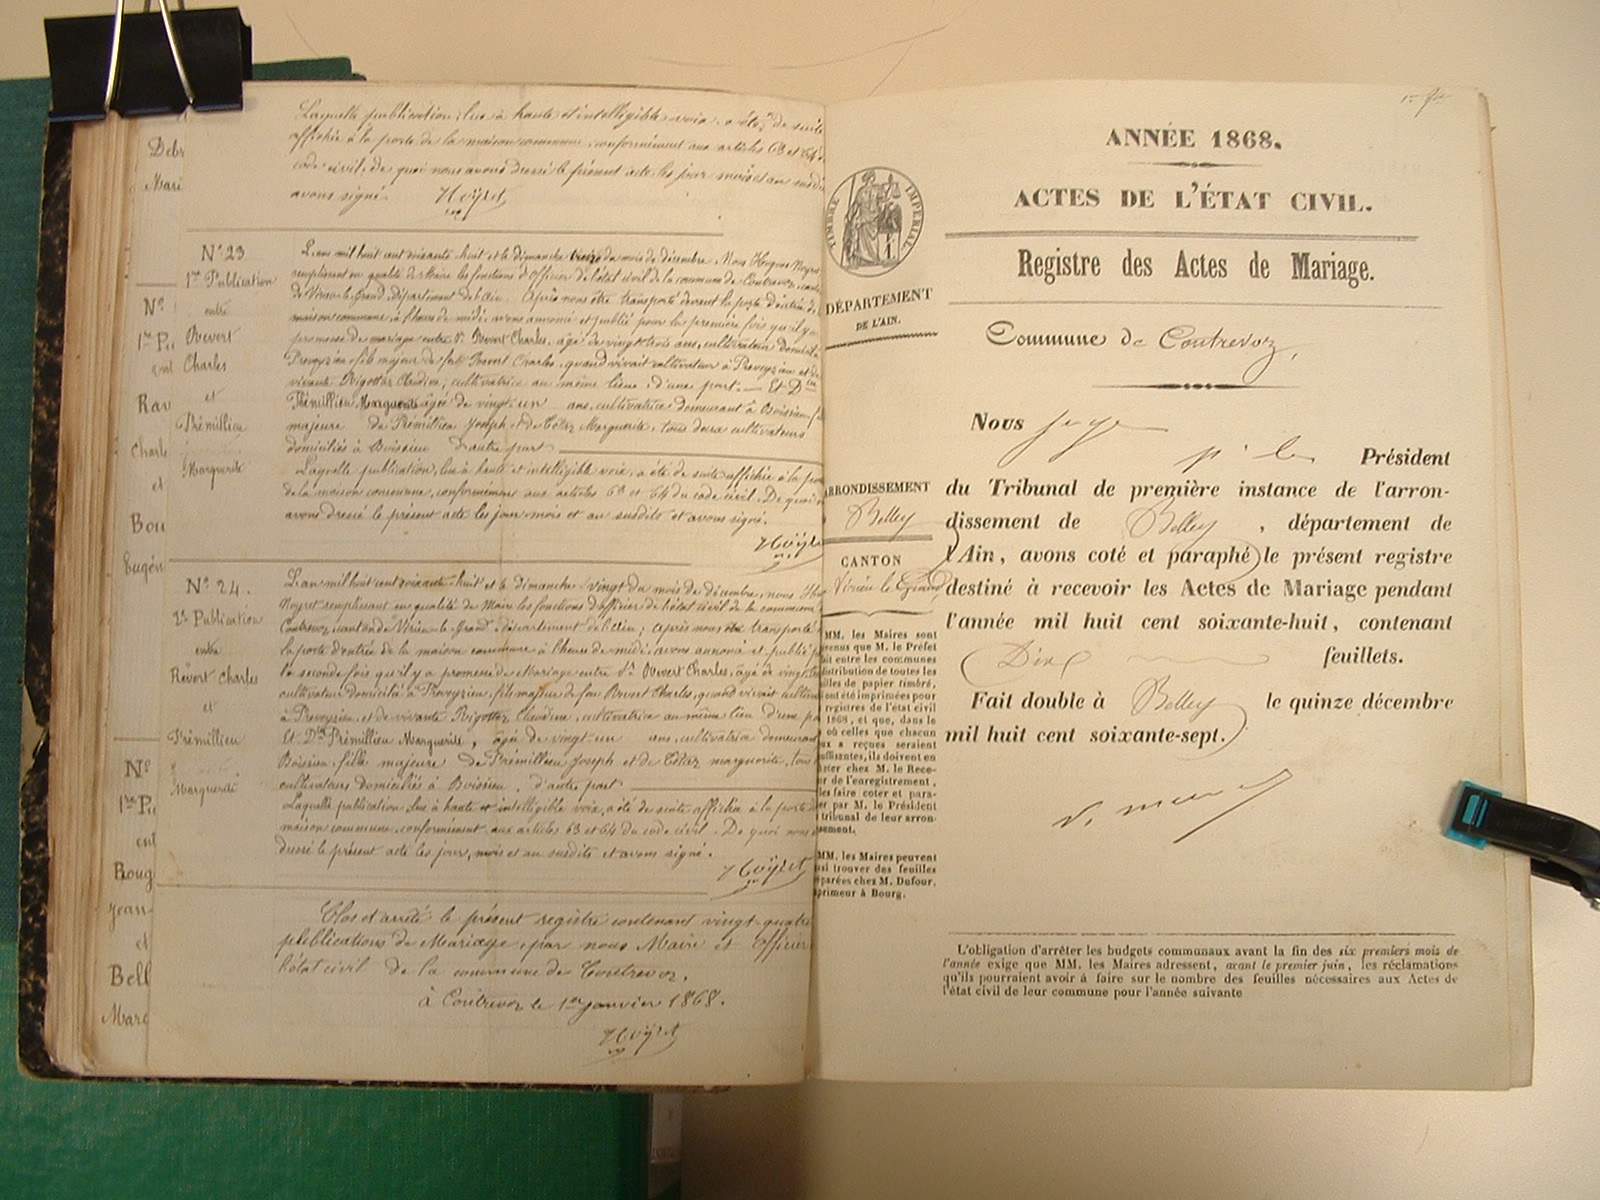 Laquelle publication, lue à haute et intelligible voix, a été de suite
affichée à la porte de la maison commune, conformément aux articles 63 et 64 d
code civil. de quoi nous avons dressé le présent acte les jour mois et an
avons signé. Hoÿret
Debr
Mari
N°
1re Pu
ent
Rav
Charle
et
Bou
Eugén
N°
1re Pu
ent
Roug
Jean-
et
Bell
Marg
N° 23
1re Publication
entre
Revert
Charles
et
Prémillieu
Marguerite
L'an mil huit cent soixante huit et le dimanche treize du mois de décembre. Nous
remplissant en qualité de Maire les fonctions d'officier de l'état civil de la commune de Contrevoz, canton
de Virieu-le-Grand, département de l'Ain. Après nous être transporté devant la porte d'entrée de
maison commune à l'heure de midi, avons annoncé et publié pour la première fois qu'il y a
promesse de mariage entre Sr Revert Charles, âgé de vingt trois ans, cultivateur domicilié
Preveyzieu fils majeur de feu Revert Charles, quand vivait cultivateur à Preveyzieu et de
vivante Rigottaz Claudine, cultivatrice au même lieu, d'une part. — Et Dlle
Prémillieu Marguerite âgée de vingt-un ans, cultivatrice demeurant à Boissieu, f
majeure de Prémillieu Joseph et de Tétaz Marguerite, tous deux cultivateurs
domiciliés à Boissieu d'autre part
Laquelle publication, lue à haute et intelligible voix, a été de suite affichée à la por
de la maison commune, conformément aux articles 63 et 64 du code civil. De quoi n
avons dressé le présent acte les jour, mois et an susdits et avons signé.
Hoÿre
N° 24.
2e Publication
entre
Revert Charles
et
Prémillieu
Marguerite
L'an mil huit cent soixante-huit et le dimanche vingt du mois de décembre, nous
remplissant en qualité de Maire les fonctions d'officier de l'état civil de la commune
Contrevoz, canton de Virieu-le-Grand, département de l'Ain; après nous être transporté
la porte d'entrée de la maison commune à l'heure de midi, avons annoncé et publié p
la seconde fois qu'il y a promesse de Mariage entre Sr Revert Charles, âgé de vingt
cultivateur domicilié à Preveyzieu, fils majeur de feu Revert Charles, quand vivait cultivat
à Preveyzieu, et de vivante Rigottaz Claudine, cultivatrice au même lieu d'une pa
Et Dlle Prémillieu Marguerite, âgée de vingt-un ans, cultivatrice demeurant
Boissieu, fille majeure de Prémillieu Joseph et de Tétaz marguerite, tous
cultivateurs domiciliés à Boissieu, d'autre part
Laquelle publication, lue à haute et intelligible voix, a été de suite affichée à la porte
maison commune, conformément aux articles 63 et 64 du code civil. De quoi nous
dressé le présent acte les jour, mois et an susdits et avons signé.
Hoÿret
Clos et arrêté le présent registre contenant vingt-quatre
publications de Mariage, par nous Maire et Officier
l'état civil de la commune de Contrevoz.
à Contrevoz le 1er janvier 1868.
Hoÿret
TIMBRE IMPERIAL
DÉPARTEMENT
DE L'AIN.
ARRONDISSEMENT
Belley
CANTON
Virieu le Grand
MM. les Maires sont
venus que M. le Préfet
ait entre les communes
distribution de toutes les
illes de papier timbré,
ont été imprimées pour
registres de l'état civil
1868, et que, dans le
où celles que chacun
ux a reçues seraient
uffisantes, ils doivent en
ter chez M. le Rece-
r de l'enregistrement,
les faire coter et para-
er par M. le Président
tribunal de leur arron-
sement.
MM. les Maires peuvent
si trouver des feuilles
parées chez M. Dufour,
primeur à Bourg.
ANNÉE 1868.
ACTES DE L'ÉTAT CIVIL.
Registre des Actes de Mariage.
Commune de Contrevoz,
Nous juge
p^r le Président
du Tribunal de première instance de l'arron-
dissement de Belley, département de
l'Ain, avons coté et paraphé le présent registre
destiné à recevoir les Actes de Mariage pendant
l'année mil huit cent soixante-huit, contenant
Dix feuillets.
Fait double à Belley le quinze décembre
mil huit cent soixante-sept.
L'obligation d'arrêter les budgets communaux avant la fin des six premiers mois de
l'année exige que MM. les Maires adressent, avant le premier juin, les réclamations
qu'ils pourraient avoir à faire sur le nombre des feuilles nécessaires aux Actes de
l'état civil de leur commune pour l'année suivante